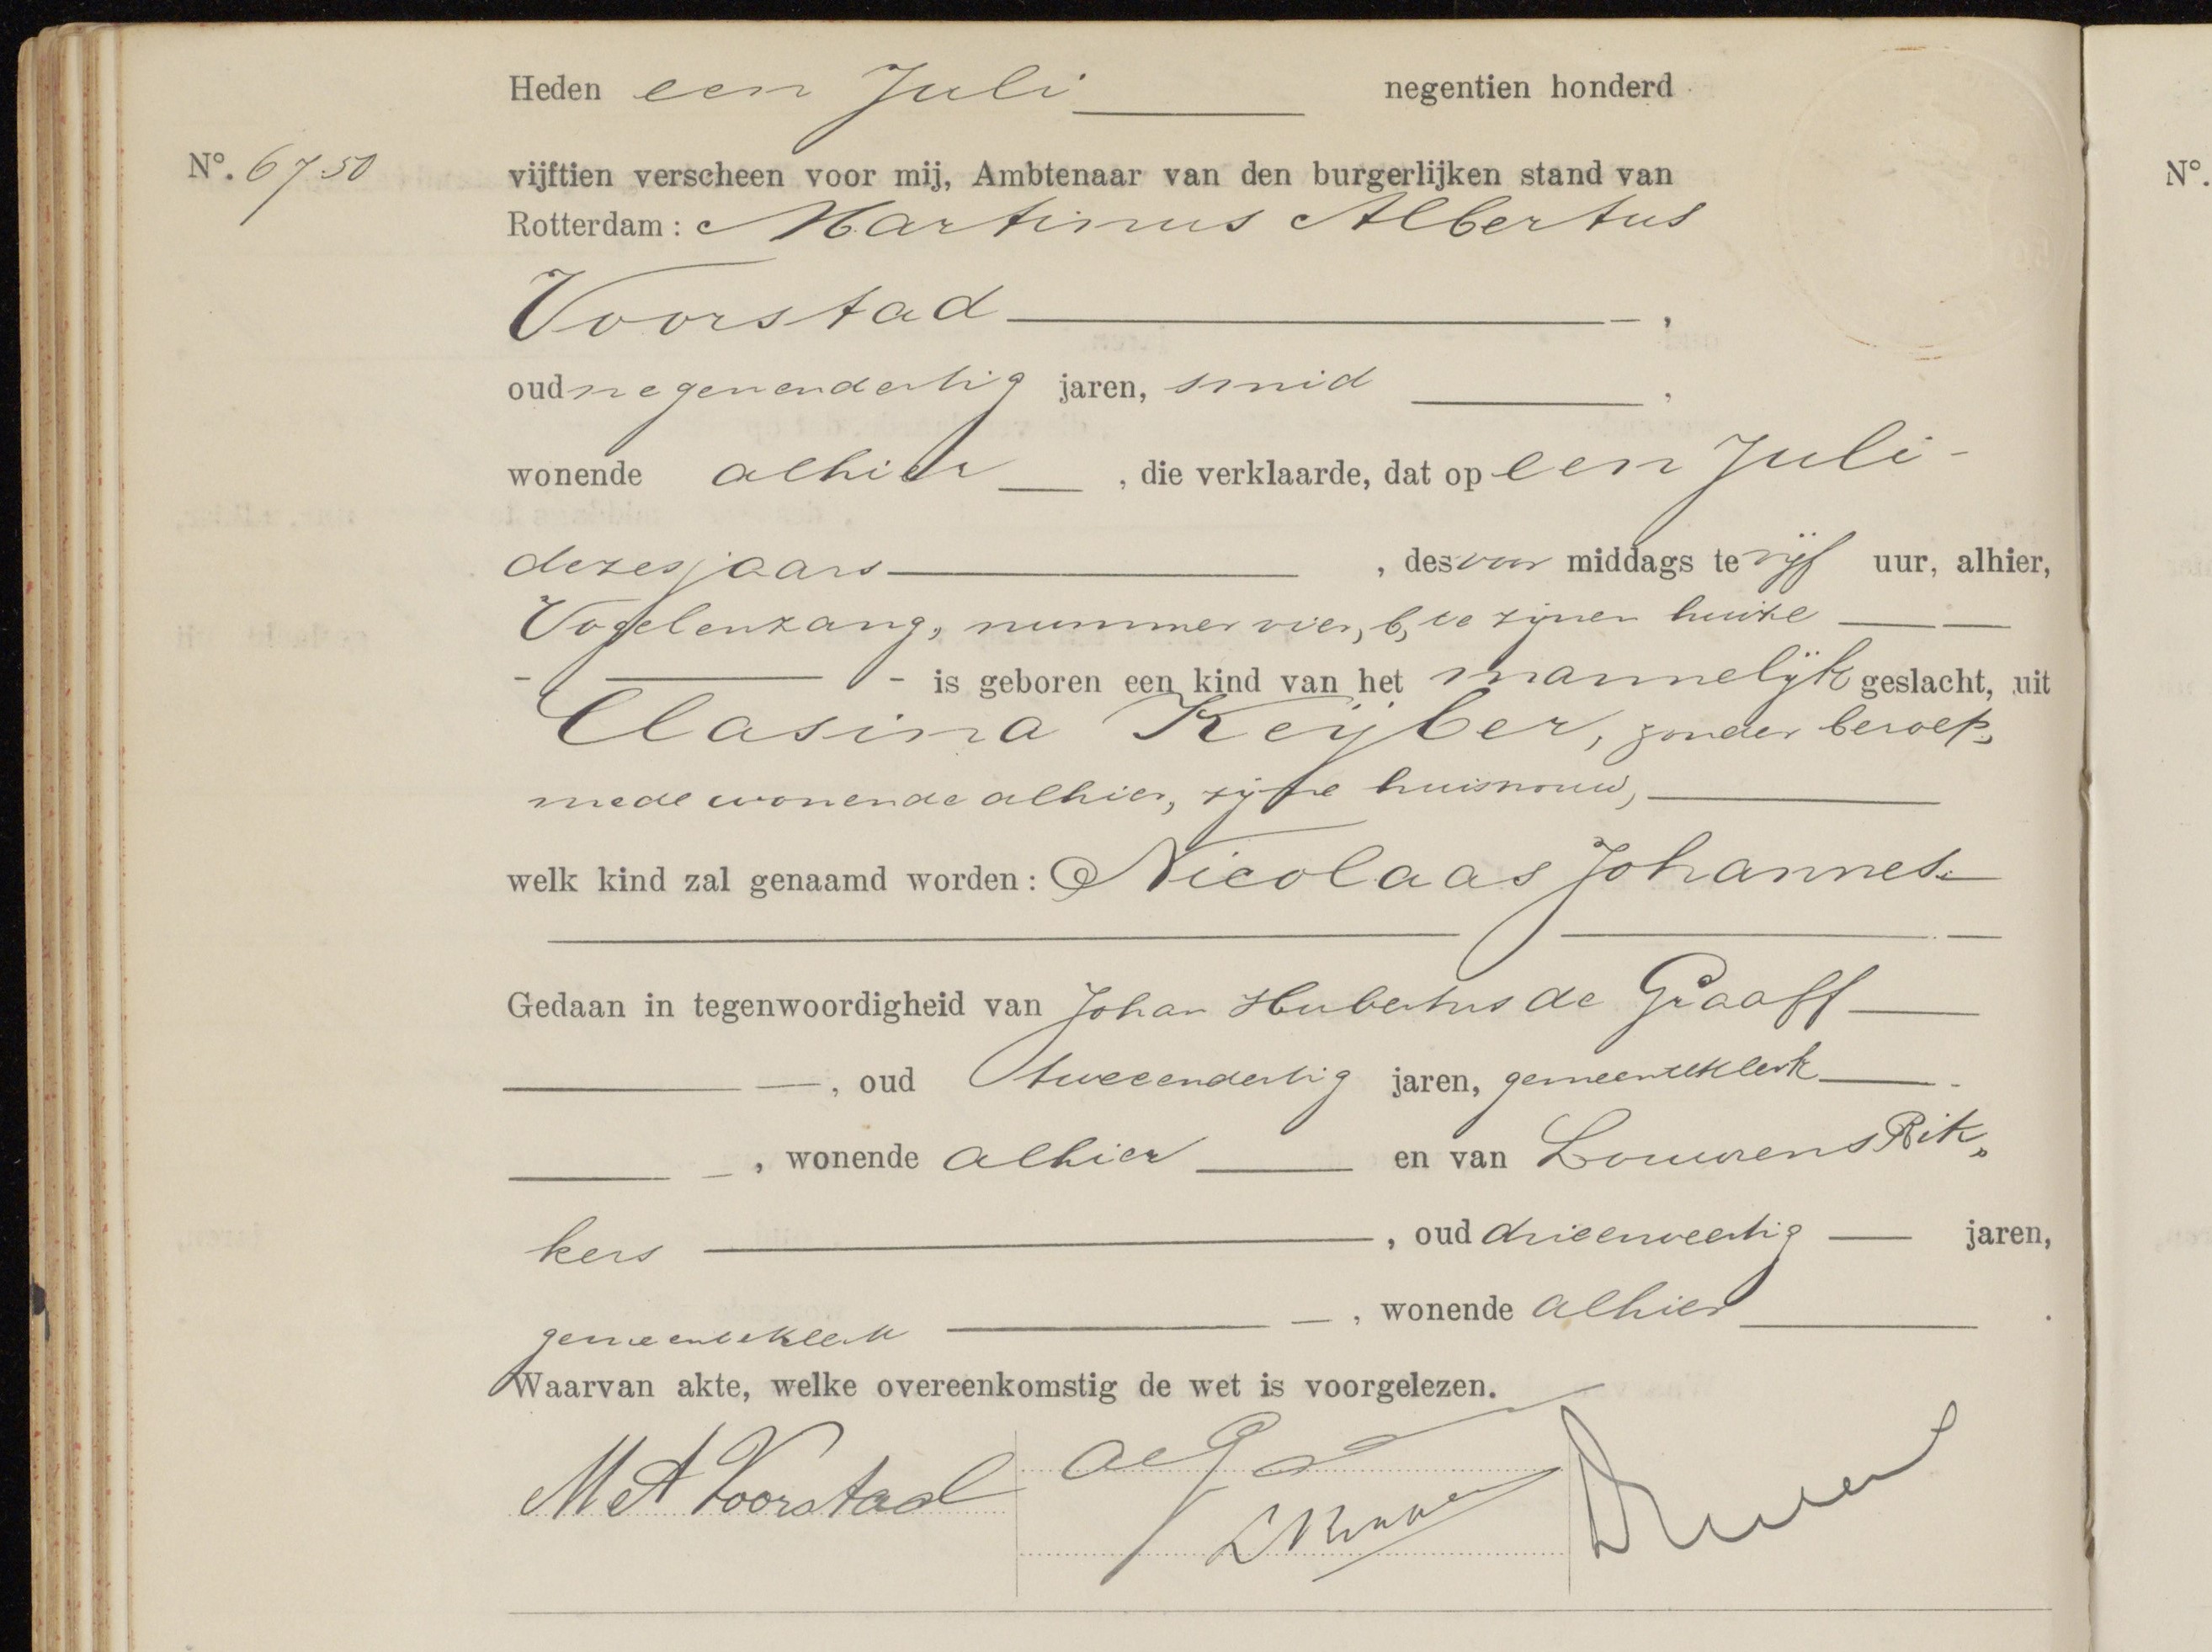 Heden een Juli negentien honderd
N°. 6750
vijftien verscheen voor mij, Ambtenaar van den burgerlijken stand van
Rotterdam: Martinus Albertus
Voorstad,
oud negenendertig jaren, smid,
wonende alhier, die verklaarde, dat op een Juli
dezes jaars, des voor middags te vijf uur, alhier,
Vogelenzang, nummer vier, b, te zijnen huize
is geboren een kind van het mannelijk geslacht, uit
Clasina Keijber, zonder beroep,
mede wonende alhier, zijne huisvrouw,
welk kind zal genaamd worden: Nicolaas Johannes.
Gedaan in tegenwoordigheid van Johan Hubertus de Graaff
, oud tweeendertig jaren, gemeenteklerk
, wonende alhier en van Louwrens Rik„
kers, oud drieenveertig jaren,
gemeenteklerk, wonende alhier.
Waarvan akte, welke overeenkomstig de wet is voorgelezen.
M A Voorstad
N°.